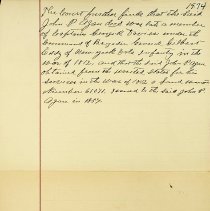 1874
The Court further finds that the said
John P. Ogan dec'd was late a member
of Captain George W. under the
Command of Brigadier General Gilbert
Eddy of New York Vols Infantry in the
War of 1812. and that the said John P. Ogan
obtained from the United States for his
services in the war of 1812 a Land Warrant
Number issued to the said John P.
Ogan in 185